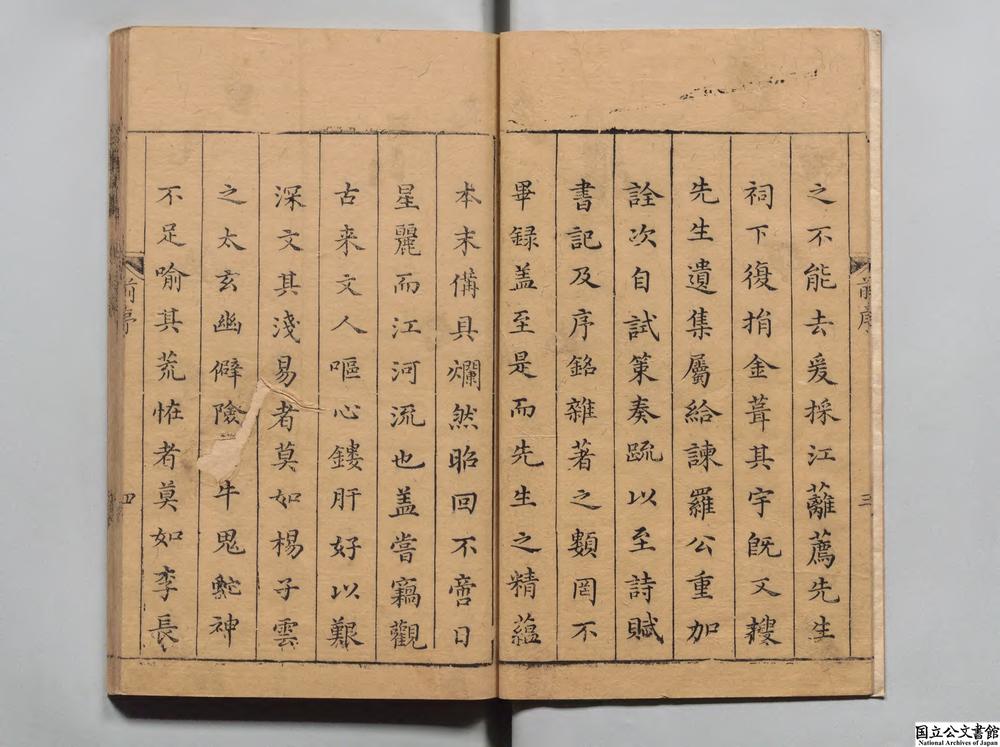 之不能去爰採江蘺薦先生
祠下復捐金葺其宇旣又捜
先生遺集屬給諫羅公重加
詮次自試策奏疏以至詩賦
書記及序銘雜著之類罔不
畢録盖至是而先生之精蘊
前序
三
本末俻具爛然昭回不啻日
星麗而江河流也盖嘗竊觀
古来文人嘔心鏤肝好以艱
深文其淺易者莫如楊子雲
之太玄幽僻險 牛鬼蛇神
不足喻其荒恠者莫如李長
前序
四
国立公文書館
National Archives of Japan